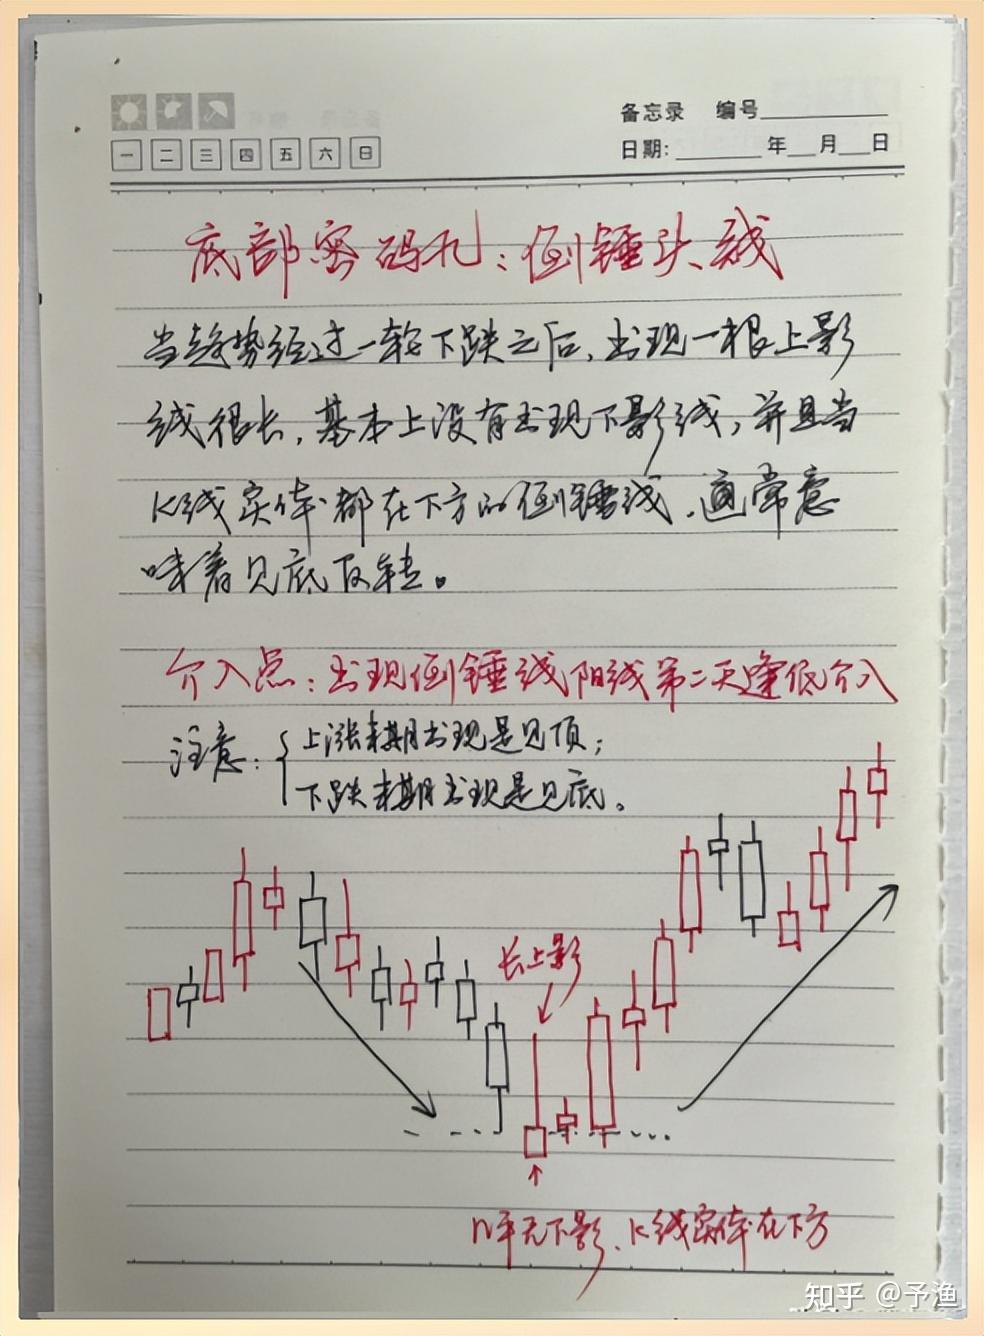 备忘录 编号
一 二 三 四 五 六 日
日期: 年 月 日
底部密码孔：倒锤头线
当趋势经过一轮下跌之后，出现一根上影
线很长，基本上没有出现下影线，并且当
K线实体都在下方的倒锤线，通常意
味着见底反转。
介入点：出现倒锤线阳线第二天逢低介入
注意：
上涨末期出现是见顶；
下跌末期出现是见底。
长上影
几乎无下影、K线实体在下方
知乎 @予渔